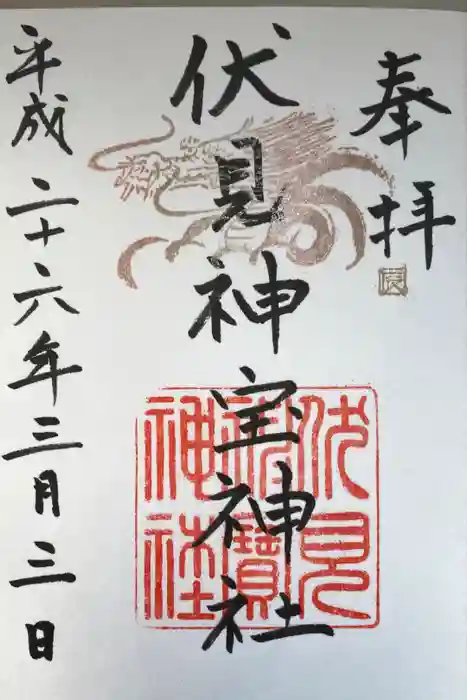 奉拝
伏見神宝神社
伏見神寶神社
平成二十六年三月三日